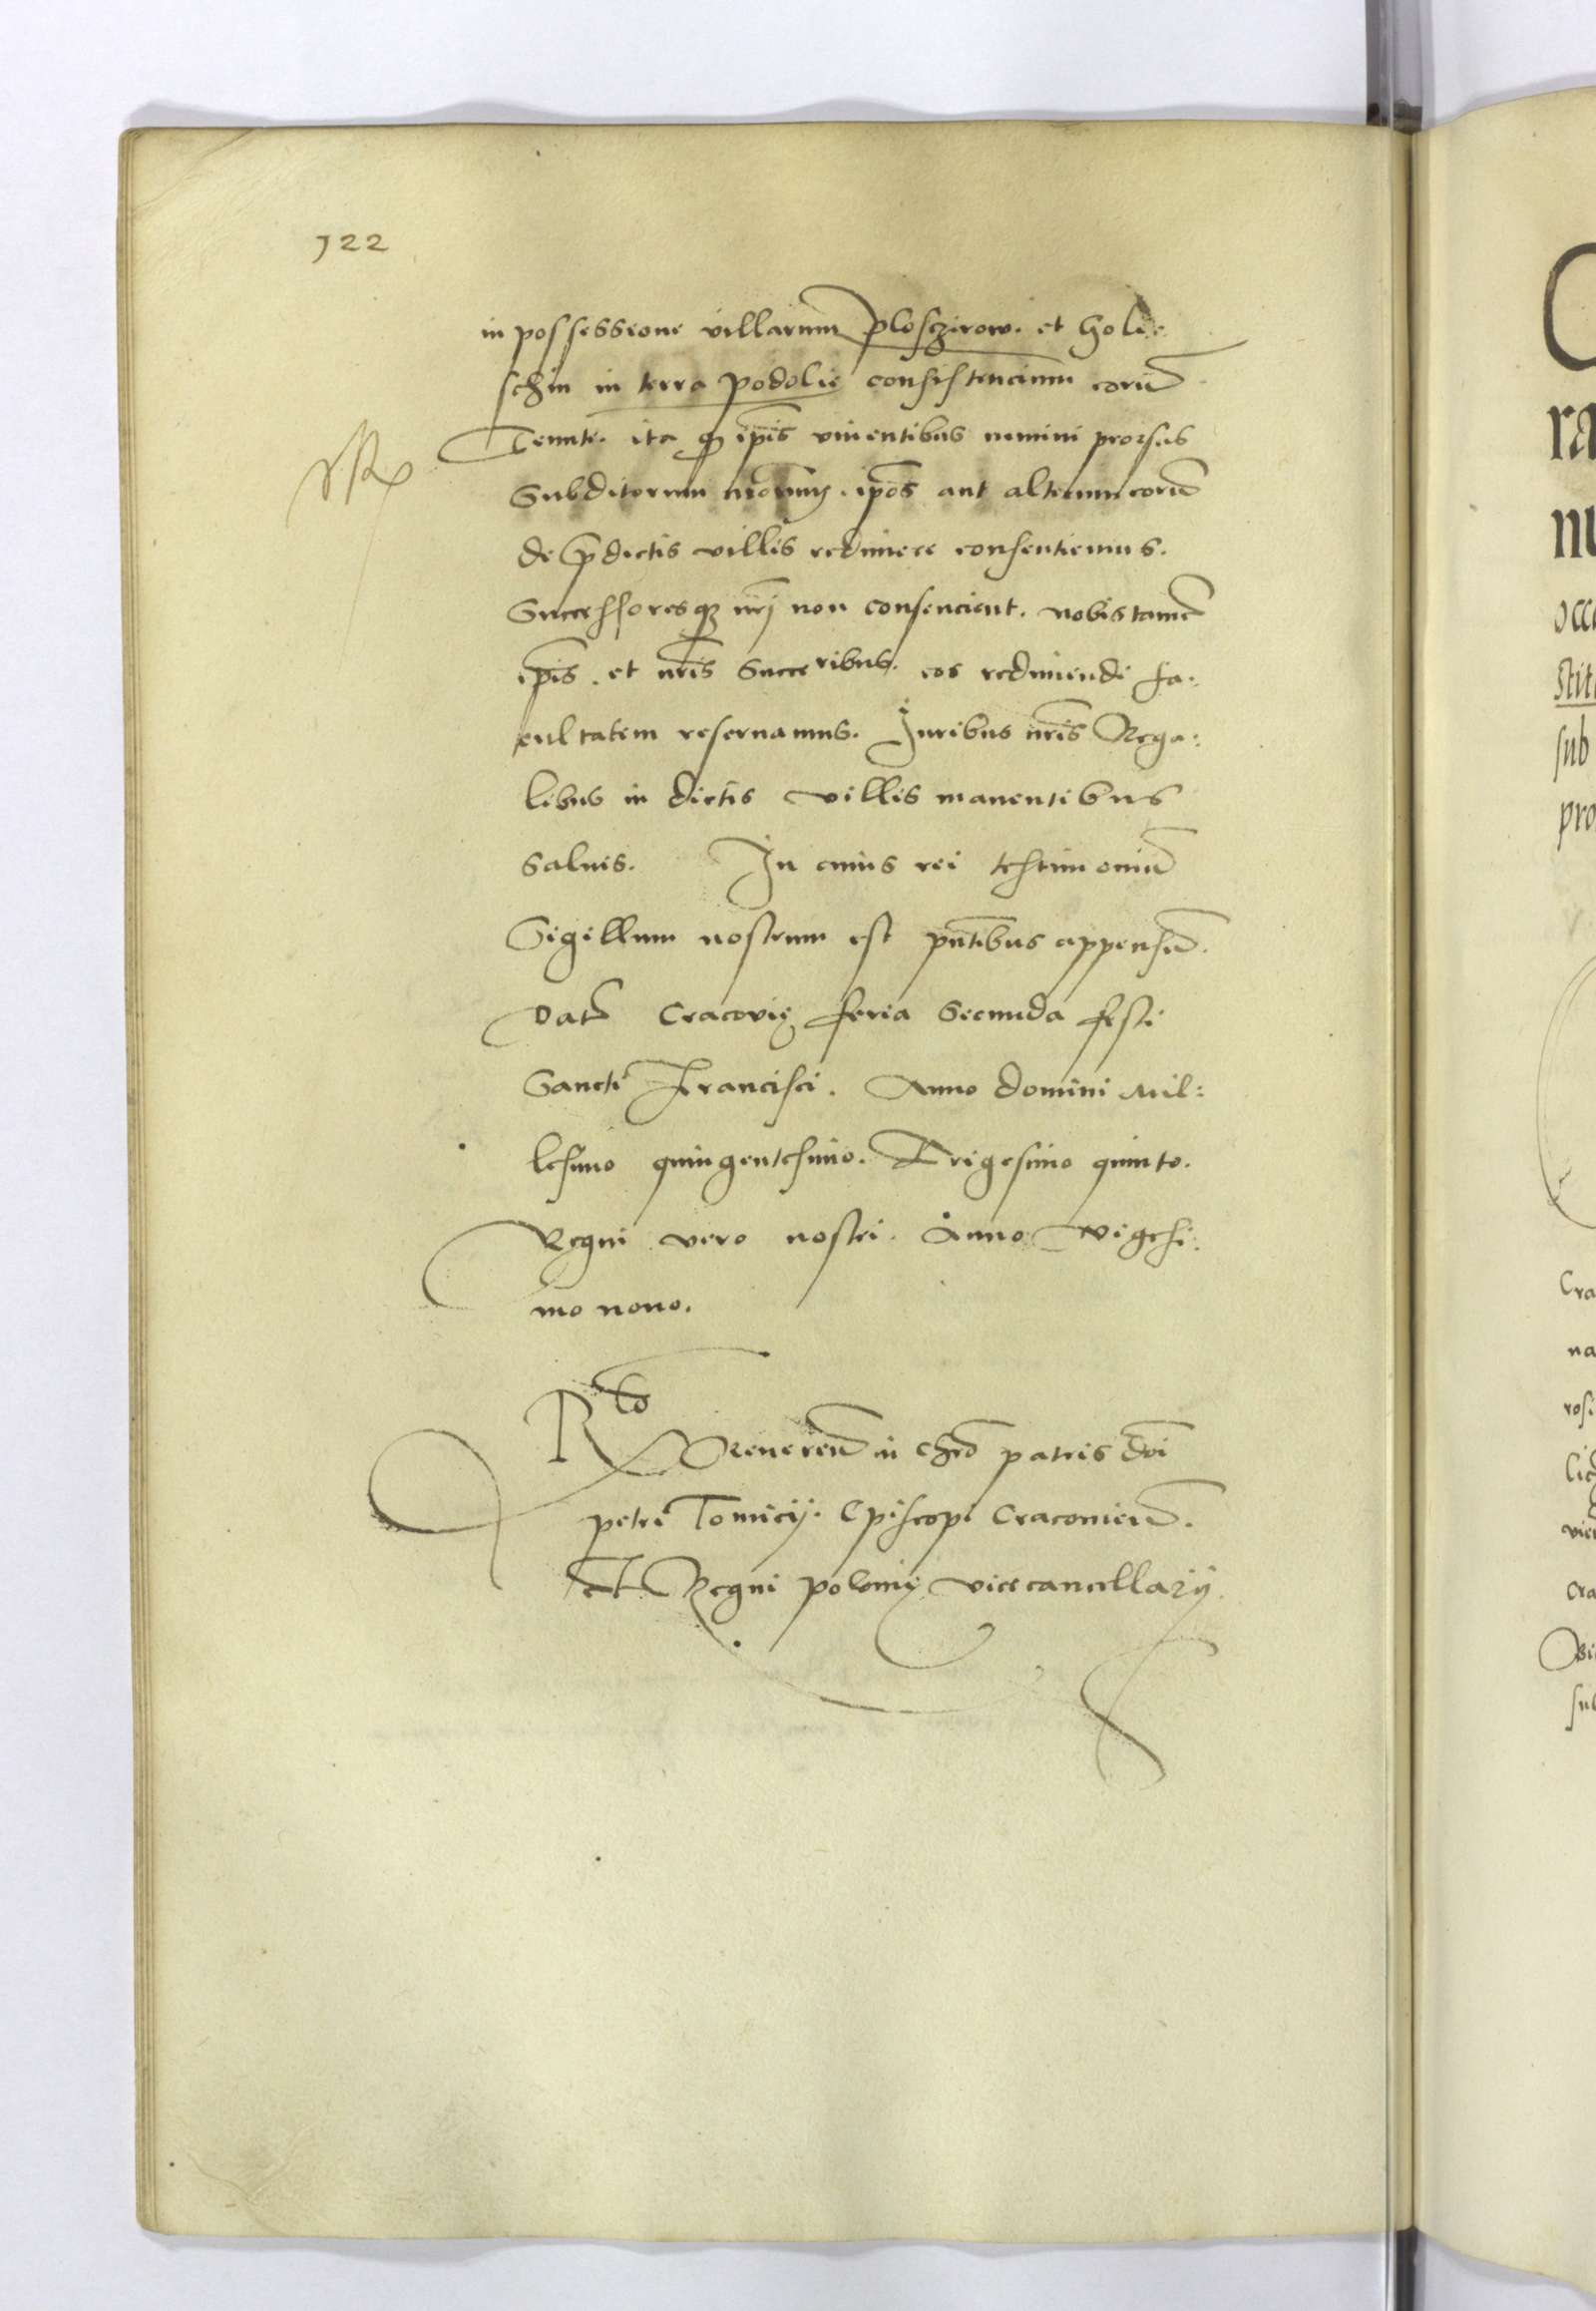 122
in possessione villarum ploszirow. et Gole:
schin in terra podolie consistencium eorū
Tenute. ita q̄ ip̄is viuentibus nemini prorsus
Subditorum nr̄orum. ip̄os aut alterum eorū
de p̄dictis villis redimere consentiemus.
Successoresq3 nr̄j non consencient. nobis tamē
ip̄is. et nr̄is Succeribus. eos redimendi fa:
cultatem reseruamus. Juribus nr̄is Rega:
libus in dictis villis manentibus
saluis. In cuius rei testimoniū
Sigillum nostrum est pn̄tibus appensū.
Dat̄ Cracovię feria secunda festi
Sancti Francisci. Anno domini Mil:
lesimo quingentesimo. Trigesimo quinto.
Regni vero nostri. Anno vigesi:
mo nono.
R̄to
Reueren̄ in chr̄o patris dn̄i
petri Tomicij. Episcopi Cracouien̄.
et Regni polonię vicecancellarij.
ra
nu
occu
stit
sub
pro
Cra
na
rosi
vie
cra
sub